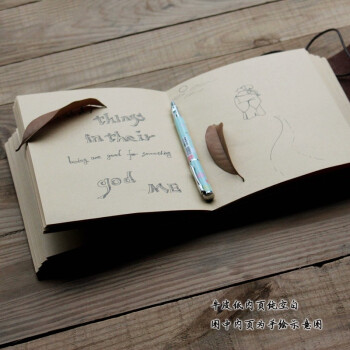 things
in their
being are good for something
god MR
牛皮纸内页梳空白
图中内页为手绘示意图